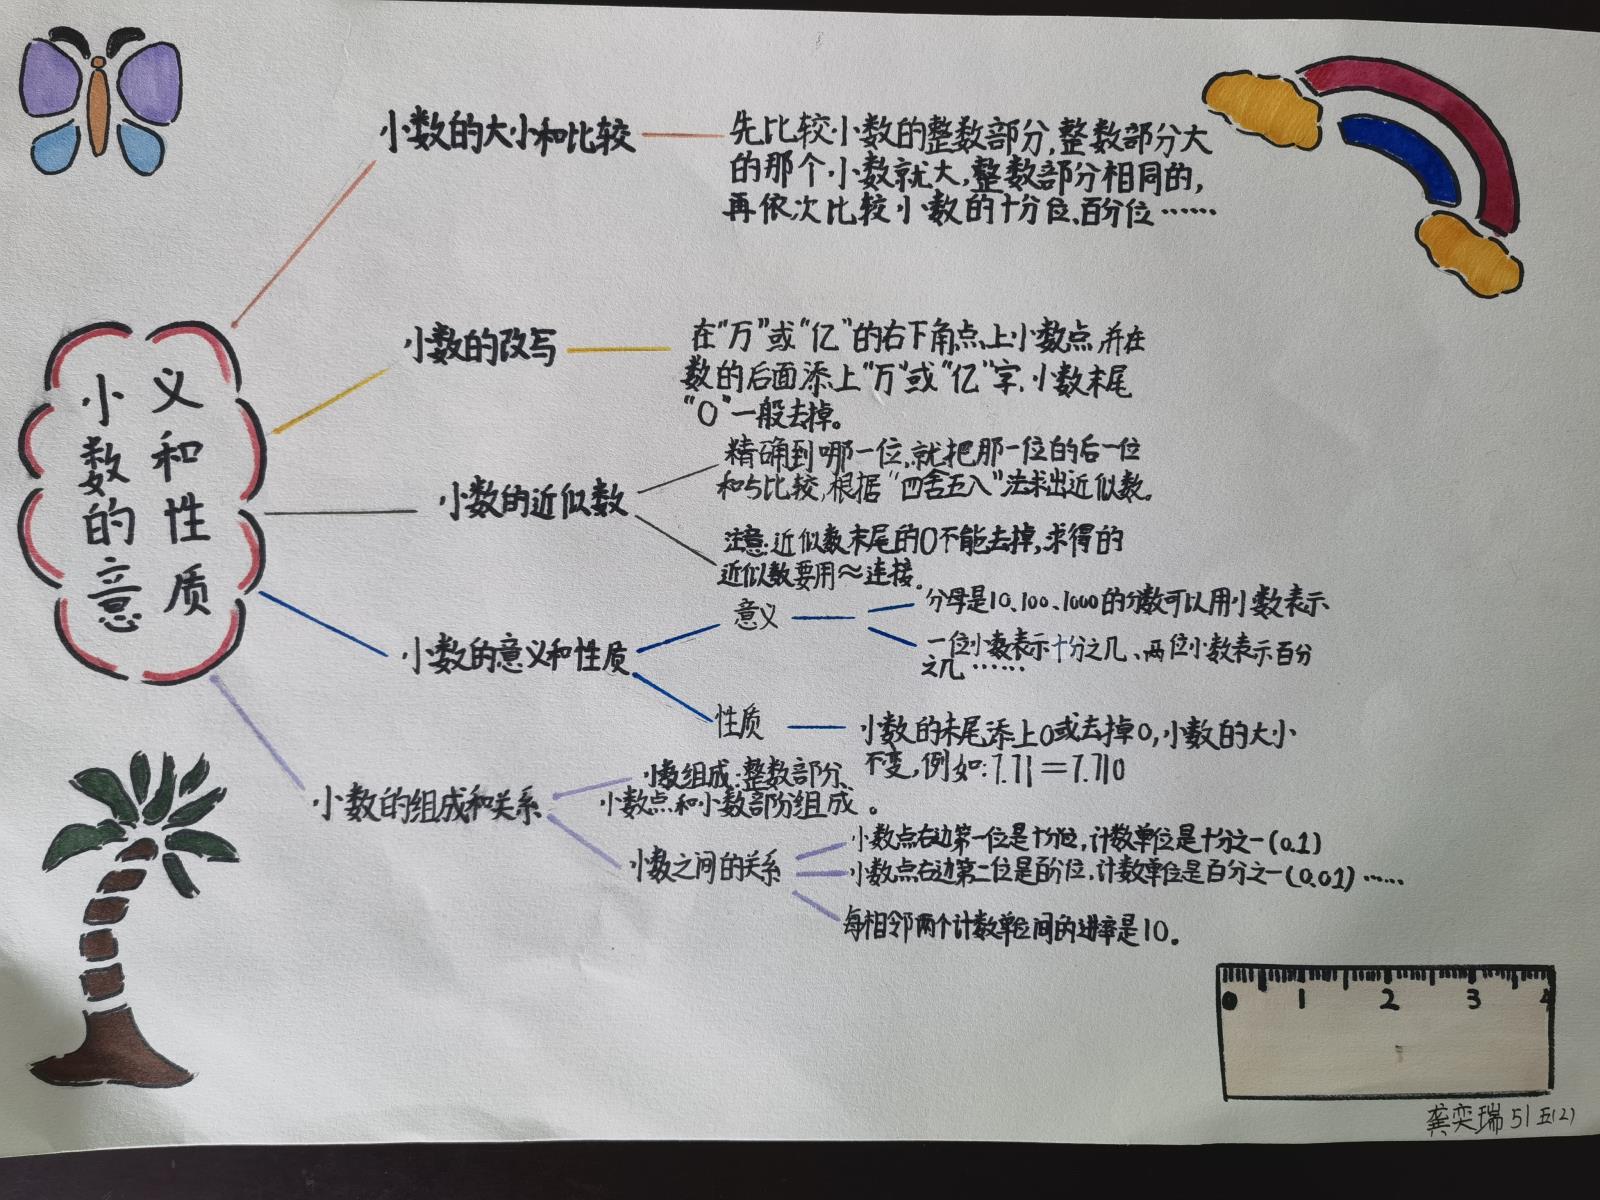 小数的意
义和性质
小数的大小和比较
先比较小数的整数部分,整数部分大
的那个小数就大,整数部分相同的,
再依次比较小数的十分位、百分位……
小数的改写
在“万”或“亿”的右下角点上小数点,并在
数的后面添上“万”或“亿”字,小数末尾
“0”一般去掉。
小数的近似数
精确到哪一位,就把那一位的后一位
和5比较,根据“四舍五入”法求出近似数。
注意:近似数末尾的0不能去掉,求得的
近似数要用≈连接。
小数的意义和性质
意义
分母是10、100、1000的分数可以用小数表示
一位小数表示十分之几、两位小数表示百分
之几……
性质
小数的末尾添上0或去掉0,小数的大小
不变,例如:7.71=7.710
小数的组成和关系
小数组成:整数部分、
小数点和小数部分组成。
小数之间的关系
小数点右边第一位是十分位,计数单位是十分之一(0.1)
小数点右边第二位是百分位,计数单位是百分之一(0.01)……
每相邻两个计数单位间的进率是10。
0 1 2 3 4
龚奕瑞 51 五(2)